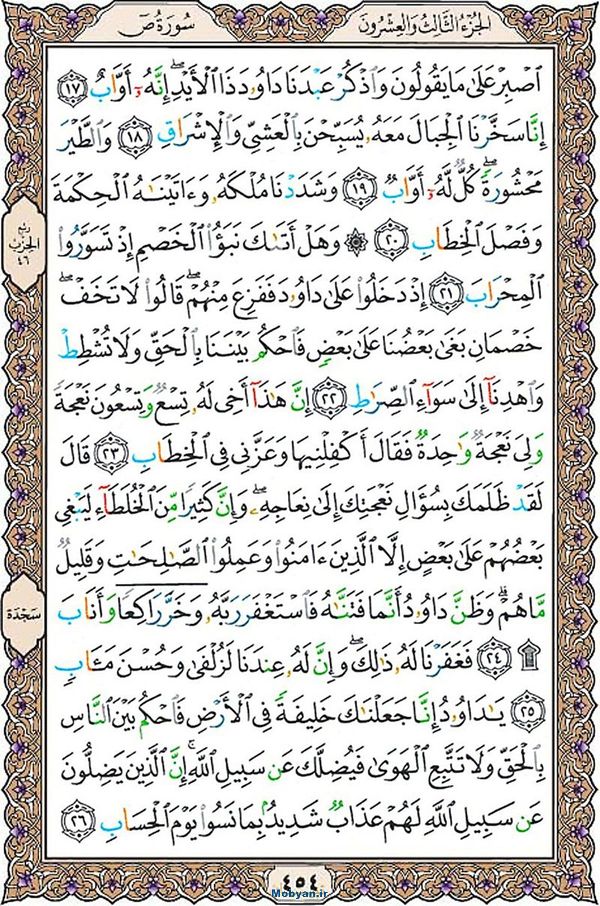 الجزء الثالث والعشرون
سورة ص
ٱصۡبِرۡ عَلَىٰ مَا يَقُولُونَ وَٱذۡكُرۡ عَبۡدَنَا دَاوُۥدَ ذَا ٱلۡأَيۡدِۖ إِنَّهُۥٓ أَوَّابٌ ١٧
إِنَّا سَخَّرۡنَا ٱلۡجِبَالَ مَعَهُۥ يُسَبِّحۡنَ بِٱلۡعَشِيِّ وَٱلۡإِشۡرَاقِ ١٨ وَٱلطَّيۡرَ
مَحۡشُورَةٗۖ كُلّٞ لَّهُۥٓ أَوَّابٞ ١٩ وَشَدَدۡنَا مُلۡكَهُۥ وَءَاتَيۡنَٰهُ ٱلۡحِكۡمَةَ
وَفَصۡلَ ٱلۡخِطَابِ ٢٠ ۞ وَهَلۡ أَتَىٰكَ نَبَؤُاْ ٱلۡخَصۡمِ إِذۡ تَسَوَّرُواْ
ٱلۡمِحۡرَابَ ٢١ إِذۡ دَخَلُواْ عَلَىٰ دَاوُۥدَ فَفَزِعَ مِنۡهُمۡۖ قَالُواْ لَا تَخَفۡۖ
خَصۡمَانِ بَغَىٰ بَعۡضُنَا عَلَىٰ بَعۡضٖ فَٱحۡكُم بَيۡنَنَا بِٱلۡحَقِّ وَلَا تُشۡطِطۡ
وَٱهۡدِنَآ إِلَىٰ سَوَآءِ ٱلصِّرَٰطِ ٢٢ إِنَّ هَٰذَآ أَخِي لَهُۥ تِسۡعٞ وَتِسۡعُونَ نَعۡجَةٗ
وَلِيَ نَعۡجَةٞ وَٰحِدَةٞ فَقَالَ أَكۡفِلۡنِيهَا وَعَزَّنِي فِي ٱلۡخِطَابِ ٢٣ قَالَ
لَقَدۡ ظَلَمَكَ بِسُؤَالِ نَعۡجَتِكَ إِلَىٰ نِعَاجِهِۦۖ وَإِنَّ كَثِيرٗا مِّنَ ٱلۡخُلَطَآءِ لَيَبۡغِي
بَعۡضُهُمۡ عَلَىٰ بَعۡضٍ إِلَّا ٱلَّذِينَ ءَامَنُواْ وَعَمِلُواْ ٱلصَّٰلِحَٰتِ وَقَلِيلٞ
مَّا هُمۡۗ وَظَنَّ دَاوُۥدُ أَنَّمَا فَتَنَّٰهُ فَٱسۡتَغۡفَرَ رَبَّهُۥ وَخَرَّۤ رَاكِعٗاۤ وَأَنَابَ
۩ ٢٤ فَغَفَرۡنَا لَهُۥ ذَٰلِكَۖ وَإِنَّ لَهُۥ عِندَنَا لَزُلۡفَىٰ وَحُسۡنَ مَـَٔابٖ
٢٥ يَٰدَاوُۥدُ إِنَّا جَعَلۡنَٰكَ خَلِيفَةٗ فِي ٱلۡأَرۡضِ فَٱحۡكُم بَيۡنَ ٱلنَّاسِ
بِٱلۡحَقِّ وَلَا تَتَّبِعِ ٱلۡهَوَىٰ فَيُضِلَّكَ عَن سَبِيلِ ٱللَّهِۚ إِنَّ ٱلَّذِينَ يَضِلُّونَ
عَن سَبِيلِ ٱللَّهِ لَهُمۡ عَذَابٞ شَدِيدُۢ بِمَا نَسُواْ يَوۡمَ ٱلۡحِسَابِ ٢٦
ربع
الحزب
٤٦
سجدة
٤٥٤
Mobyan.ir